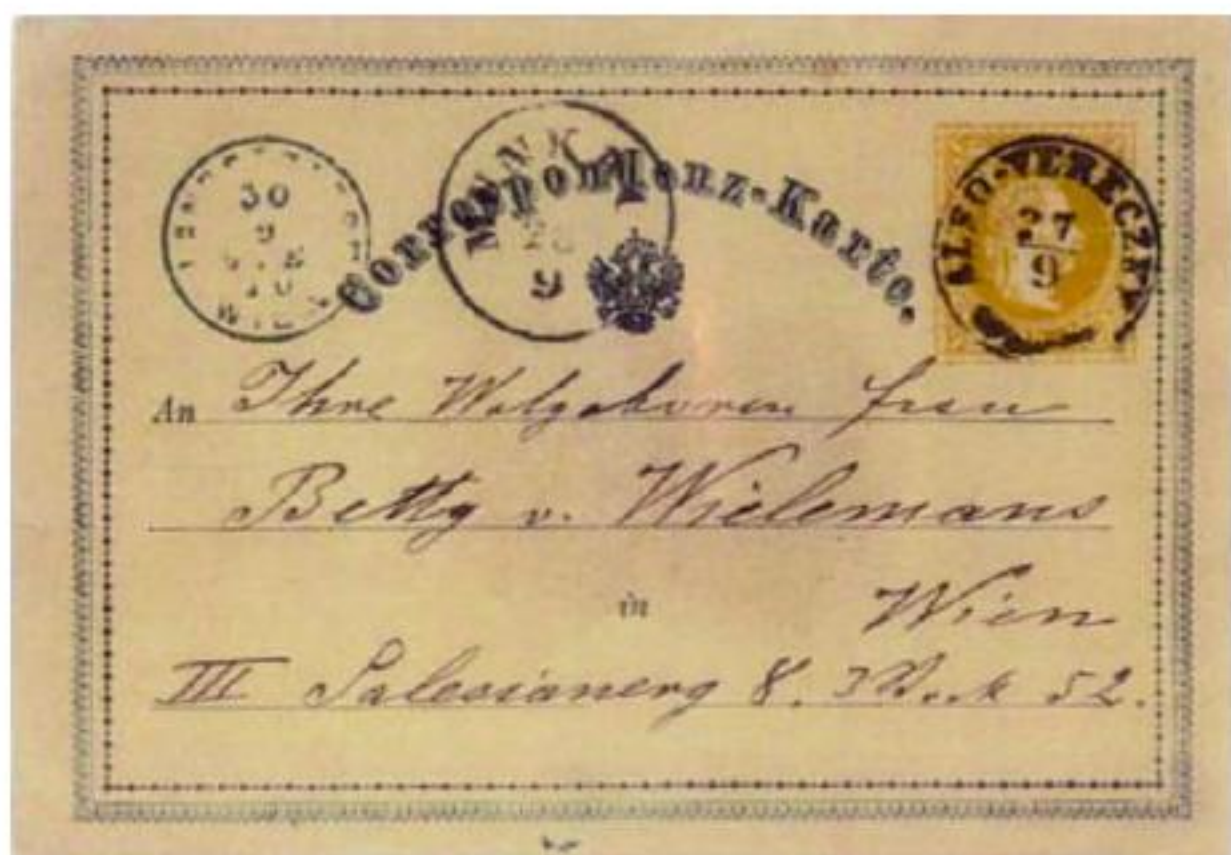 30
9
WIE
MUNK
28
9
Correspondenz-Karte.
ALSÓ-VERECZKE
27
9
An Ihre Wolgeboren Frau
Betty v. Wielemans
in Wien
III Salesianerg 8. 3 52.